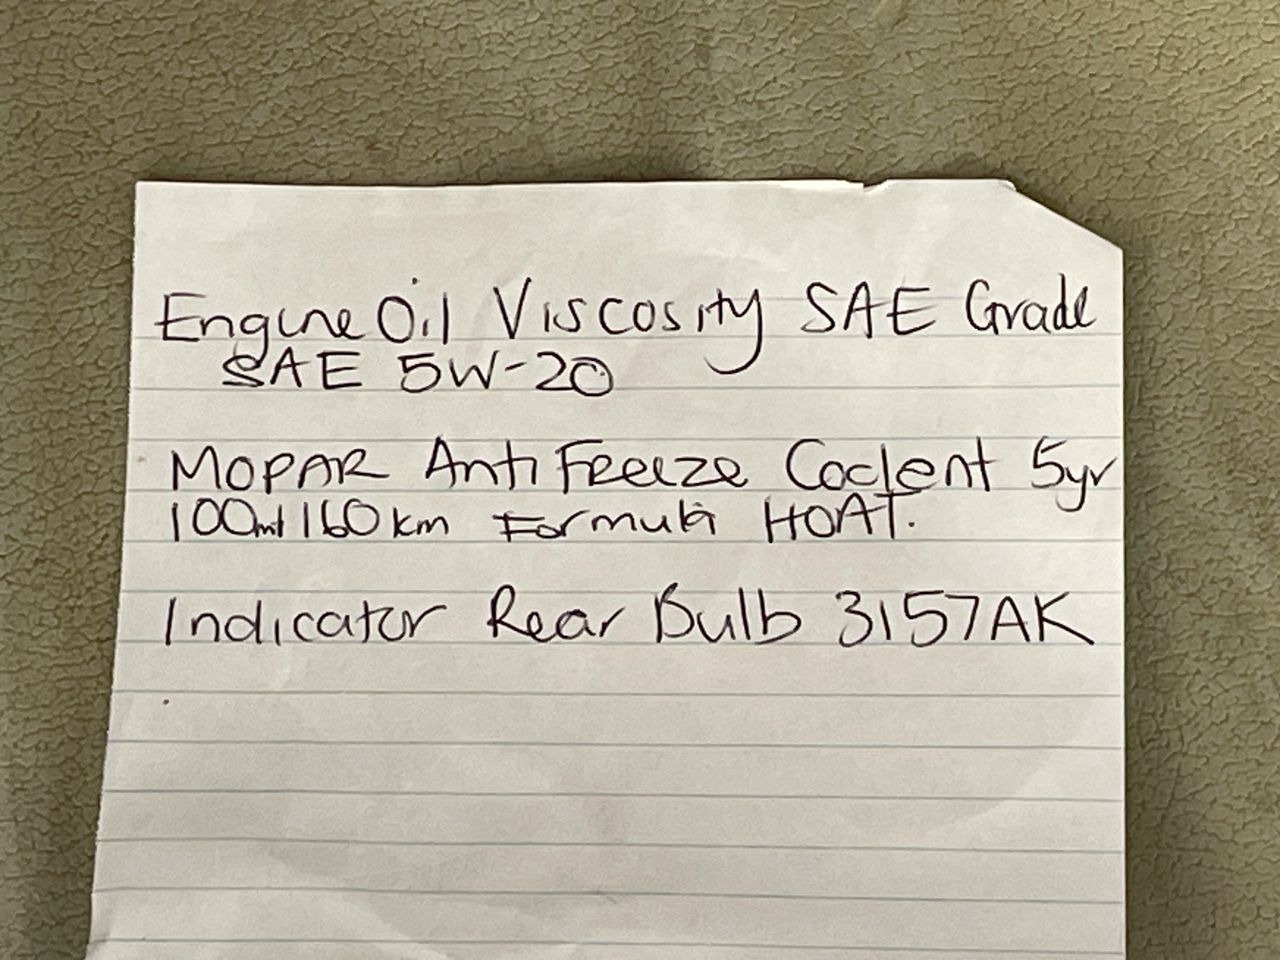 Engine Oil Viscosity SAE Grade
SAE 5W-20
MOPAR AntiFreeze Coolent 5yr
100ml 160km Formula HOAT.
Indicator Rear Bulb 3157AK